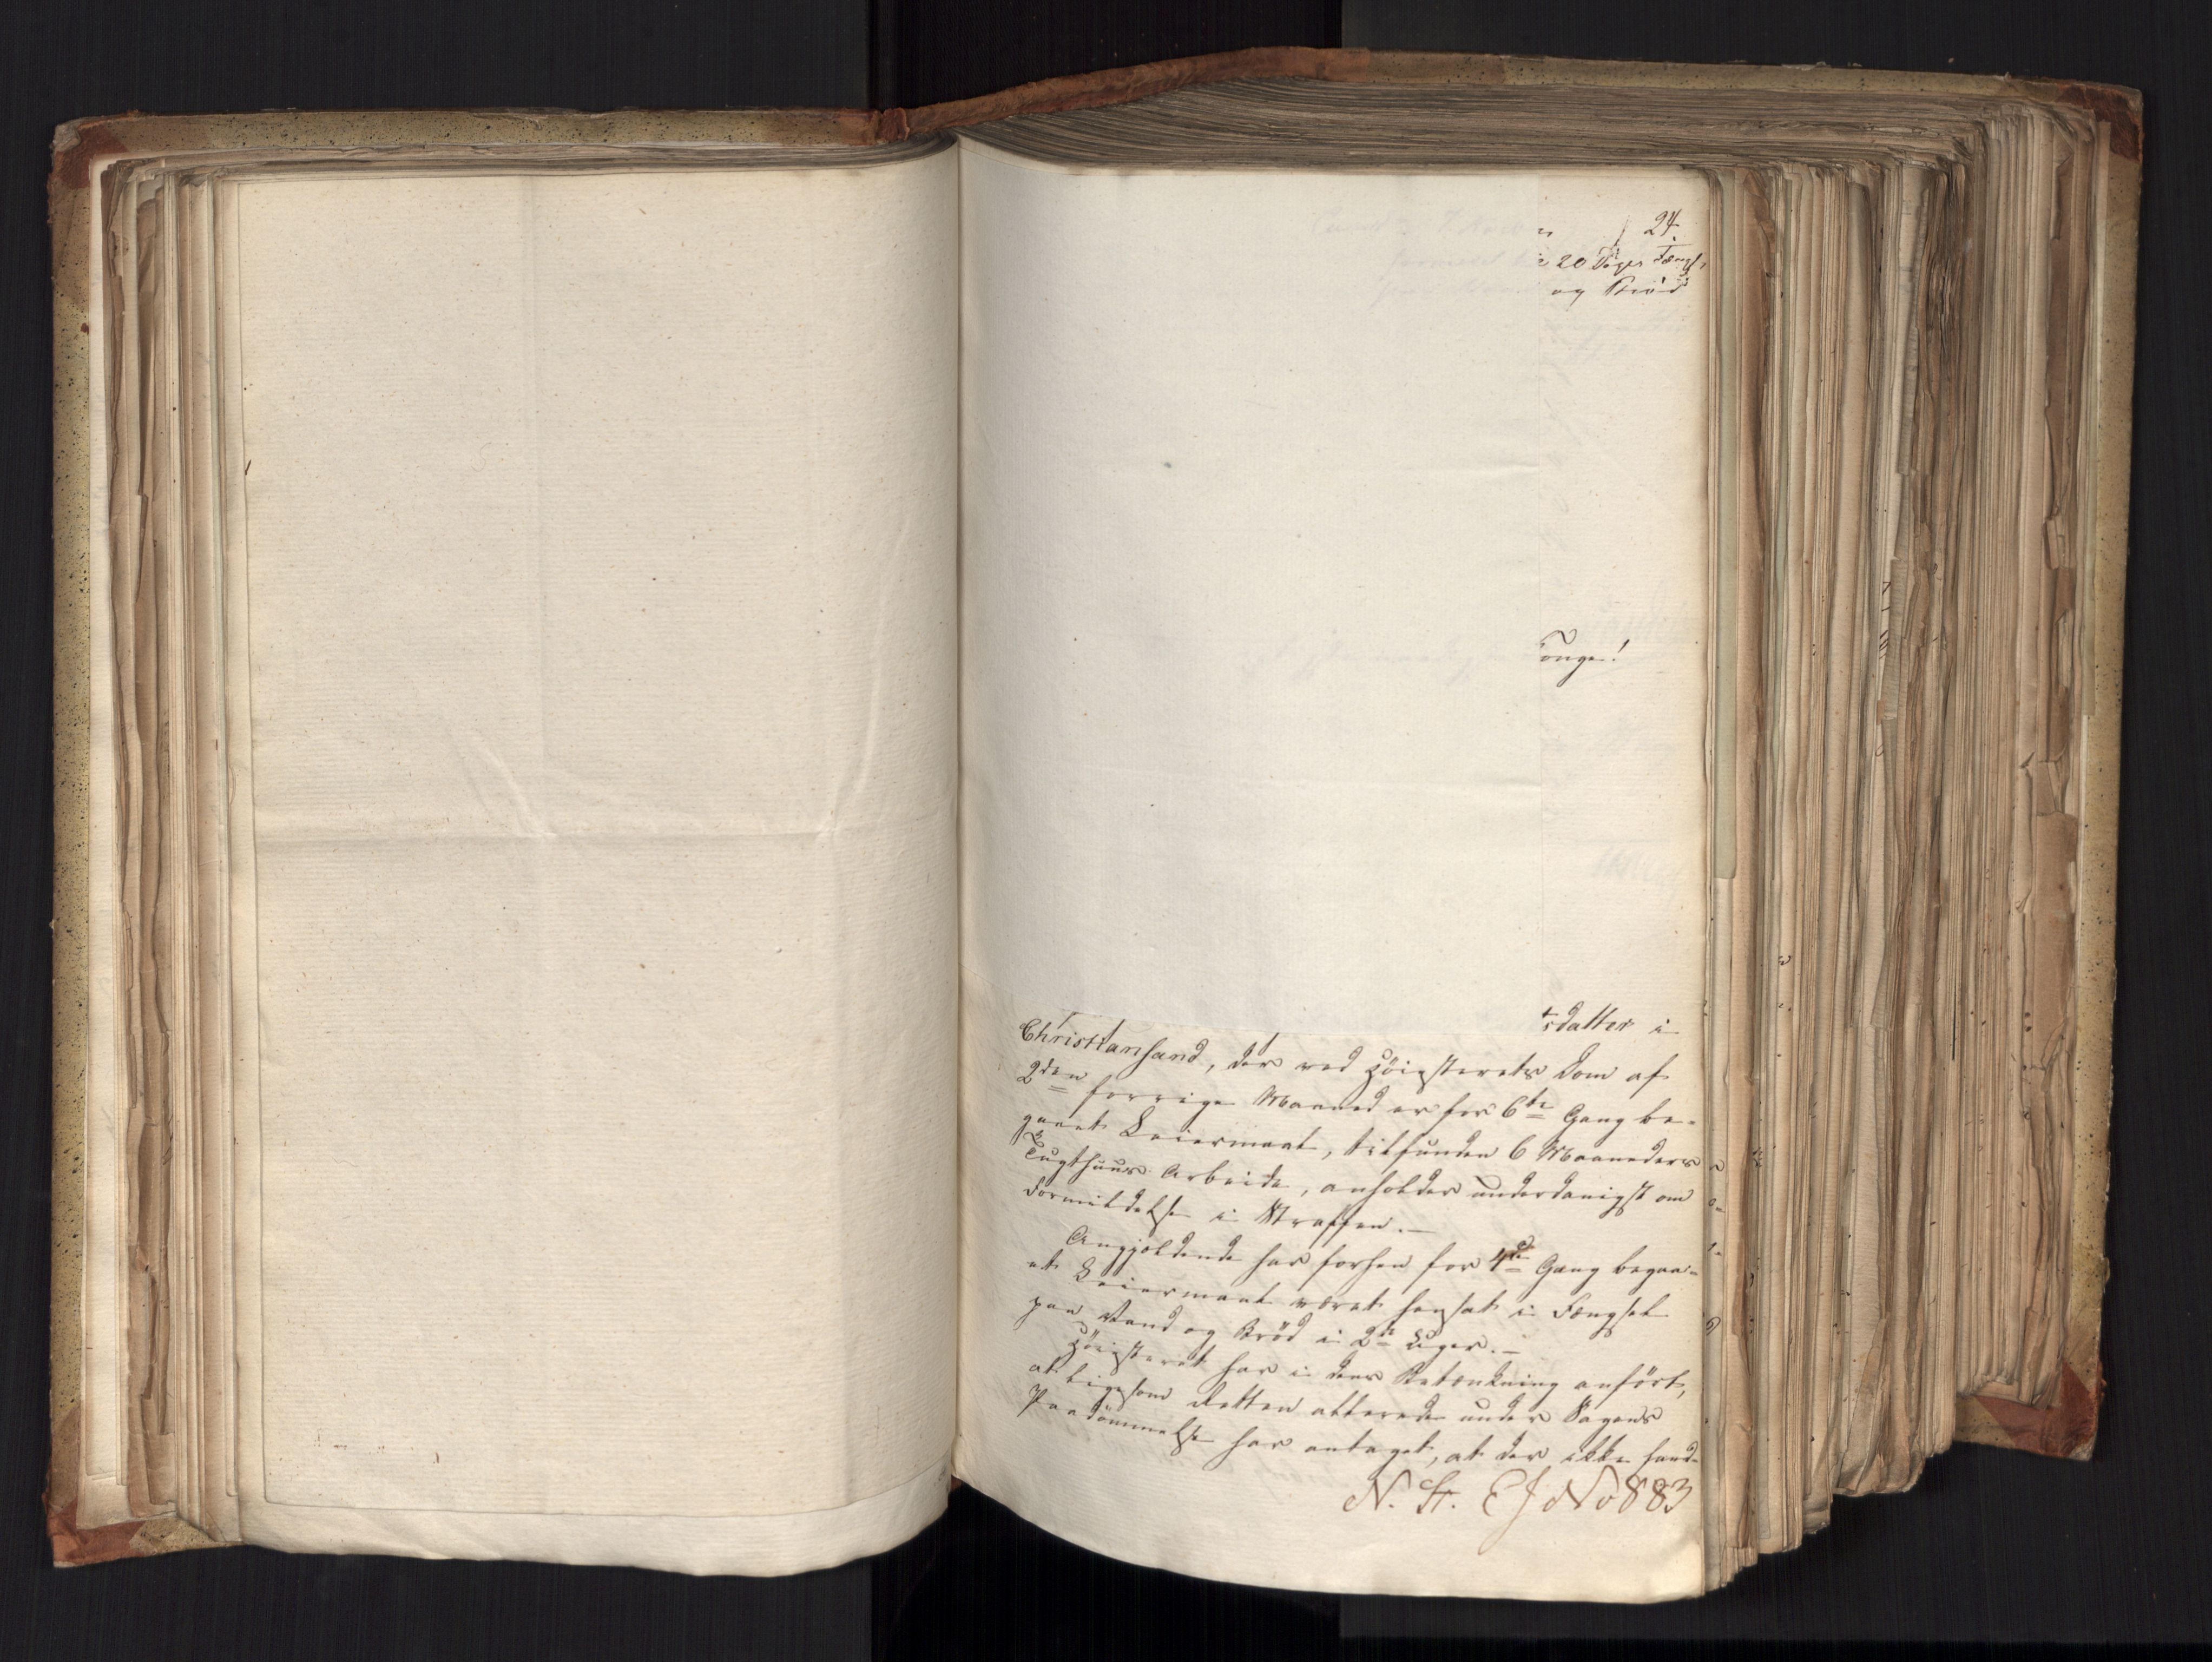 24.
20 Dages Fængs,
og Brød
Konge!
sdatter i
Christiansand, der ved Høiesterets Dom af
2den forrige Maaned er for 6te Gang be-
gaaet Leiermaal, tilfunden 6 Maaneders
Tugthuus Arbeide, anholder underdanigst om
Formildelse i Straffen.—
Angjældende har forhen for 4de Gang begaa-
et Leiermaal været hensat i Fængsel
paa Vand og Brød i 2de Uger.—
Høiesteret har i dens Betænkning anført,
at ligesom Retten allerede under Sagens
Paadømmelse har antaget, at der ikke fand-
N. St. E J No 883